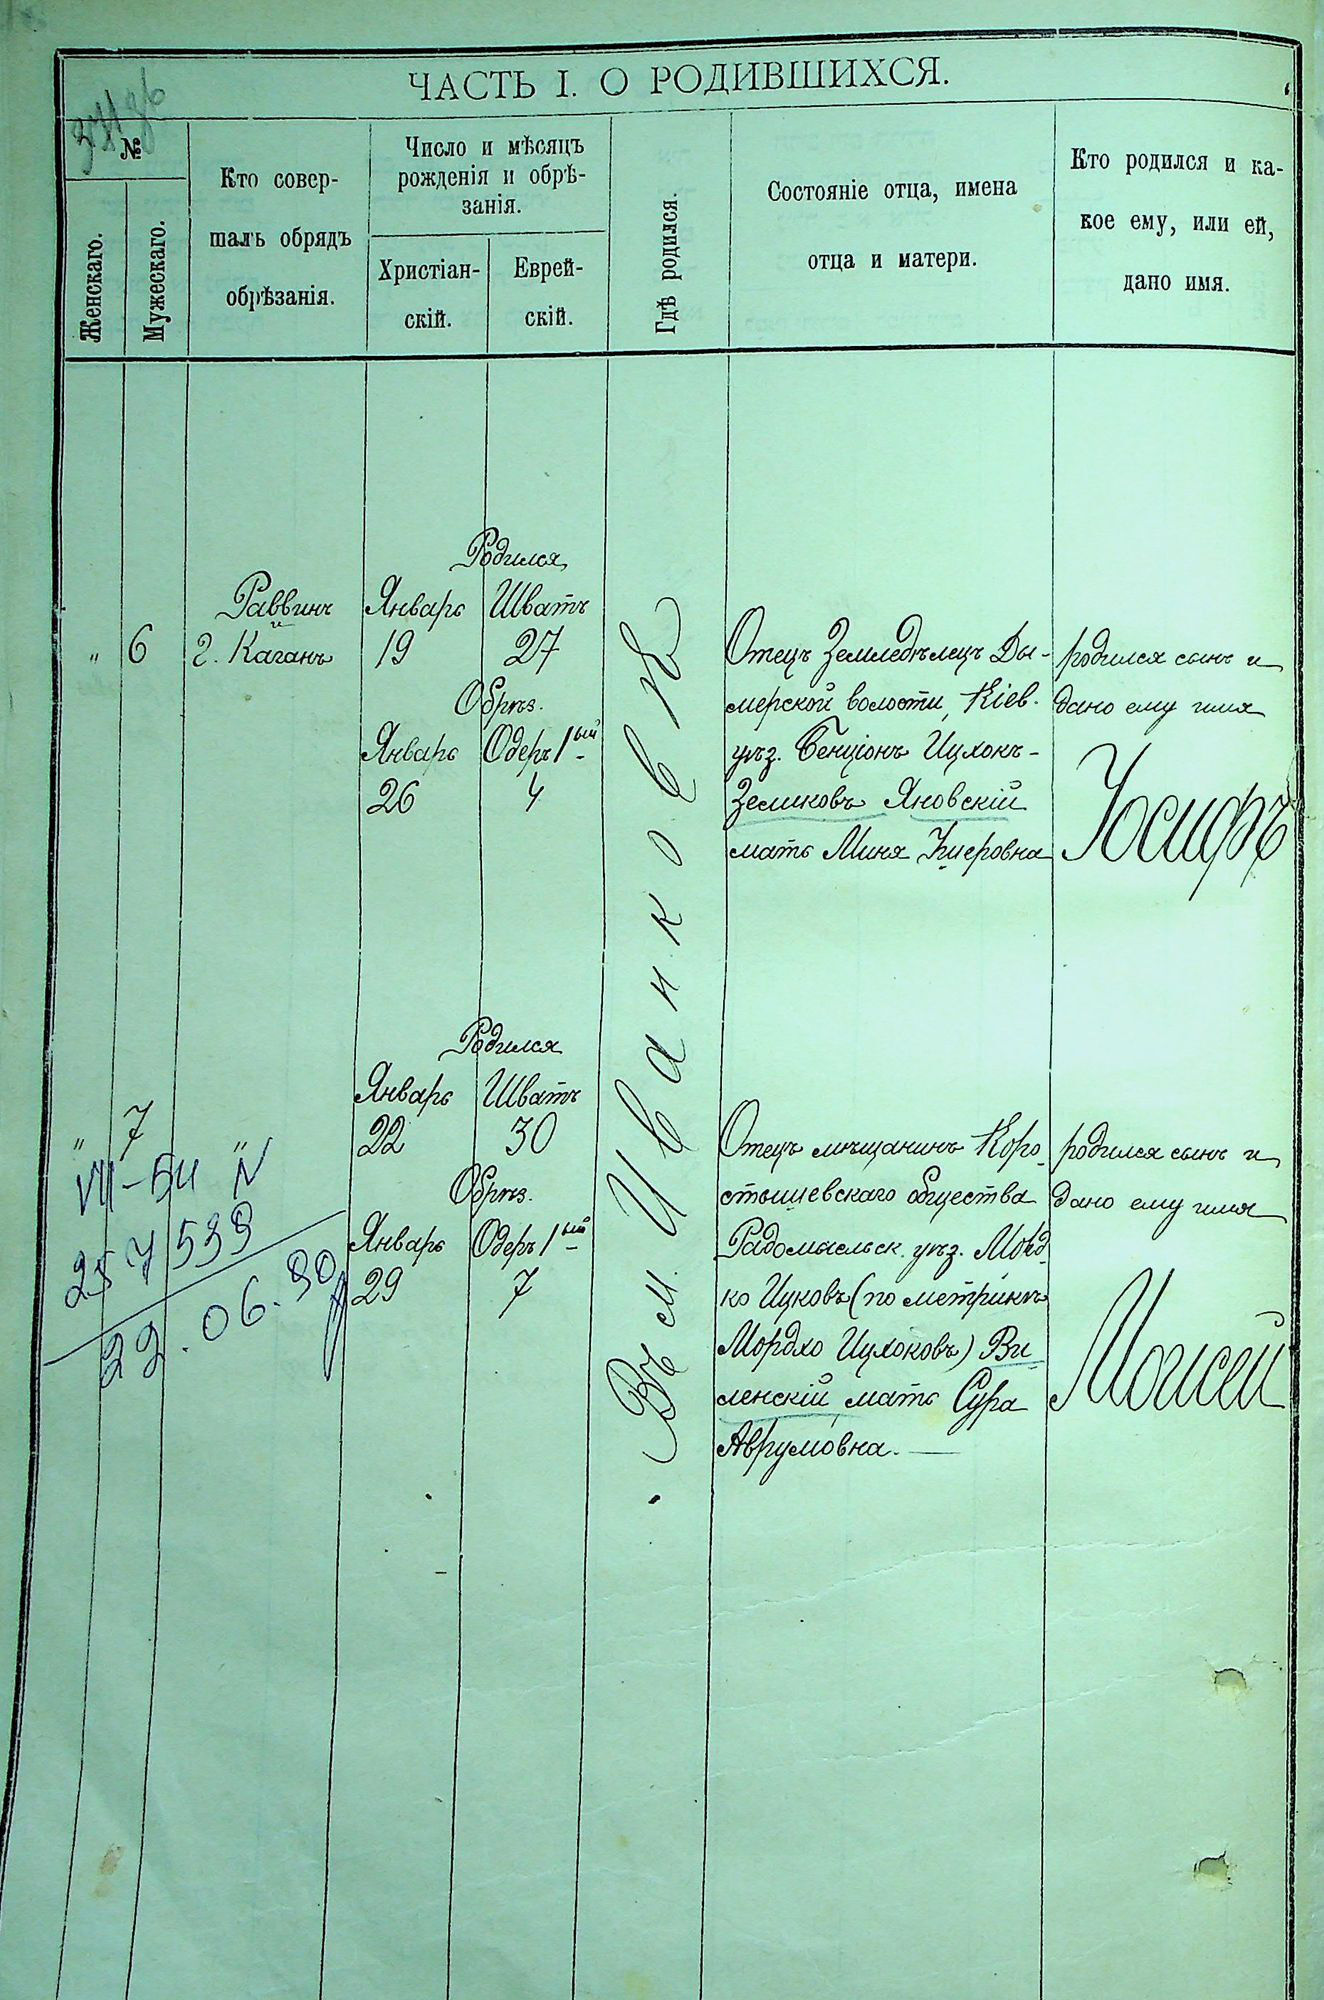 ЧАСТЬ I. О РОДИВШИХСЯ.
№
Женскаго.
Мужескаго.
Кто совер-
шалъ обрядъ
обрѣзанія.
Число и мѣсяцъ
рожденія и обрѣ-
занія.
Христіан-
скій.
Еврей-
скій.
Гдѣ родился.
Состояніе отца, имена
отца и матери.
Кто родился и ка-
кое ему, или ей,
дано имя.
" 6
Раввинъ
г. Каганъ
Родился
Январь Шватъ
19 27
Обрѣз.
Январь Одеръ 1ый
26 4
Въ м. Иванковѣ
Отецъ Земледѣлецъ Ды-
мерской волости, Кіев.
уѣз. Бенціонъ Ицхокъ-
Зеликовъ Яновскій
мать Миня
родился сынъ и
дано ему имя
Іосифъ
" 7 "
Родился
Январь Шватъ
22 30
Обрѣз.
Январь Одеръ 1ый
29 7
Отецъ мѣщанинъ Коро-
стышевскаго общества
Радомысльск. уѣз. Морд-
ко Ицковъ (по метрикѣ
Мордхо Ицхоковъ) Ви-
ленскій мать Сура
Аврумовна.
родился сынъ и
дано ему имя
Моисей
VII-БИ N
257539
22.06.90